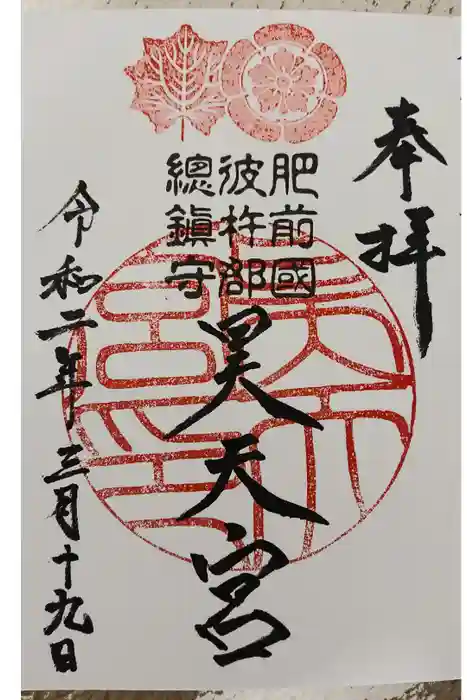 奉拝
肥前國
彼杵郡
總鎮守
昊天宮
昊天
宮印
令和二年三月十九日